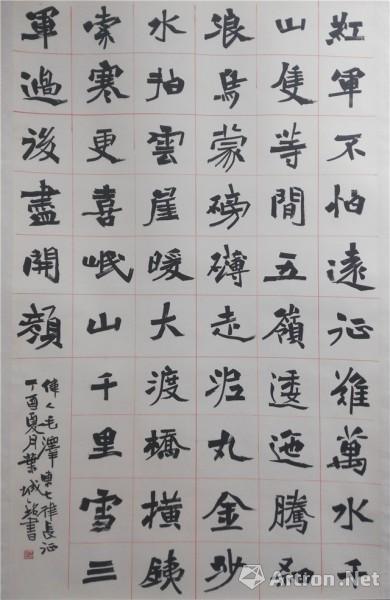 紅軍不怕遠征難萬水千
山隻等間五嶺逶迤騰細
浪烏蒙磅礴走泥丸金沙
水拍雲崖暖大渡橋橫銕
索寒更喜岷山千里雪三
軍過後盡開顏
偉人毛澤東七律長征
丁酉夏月葉城書
Artron.Net